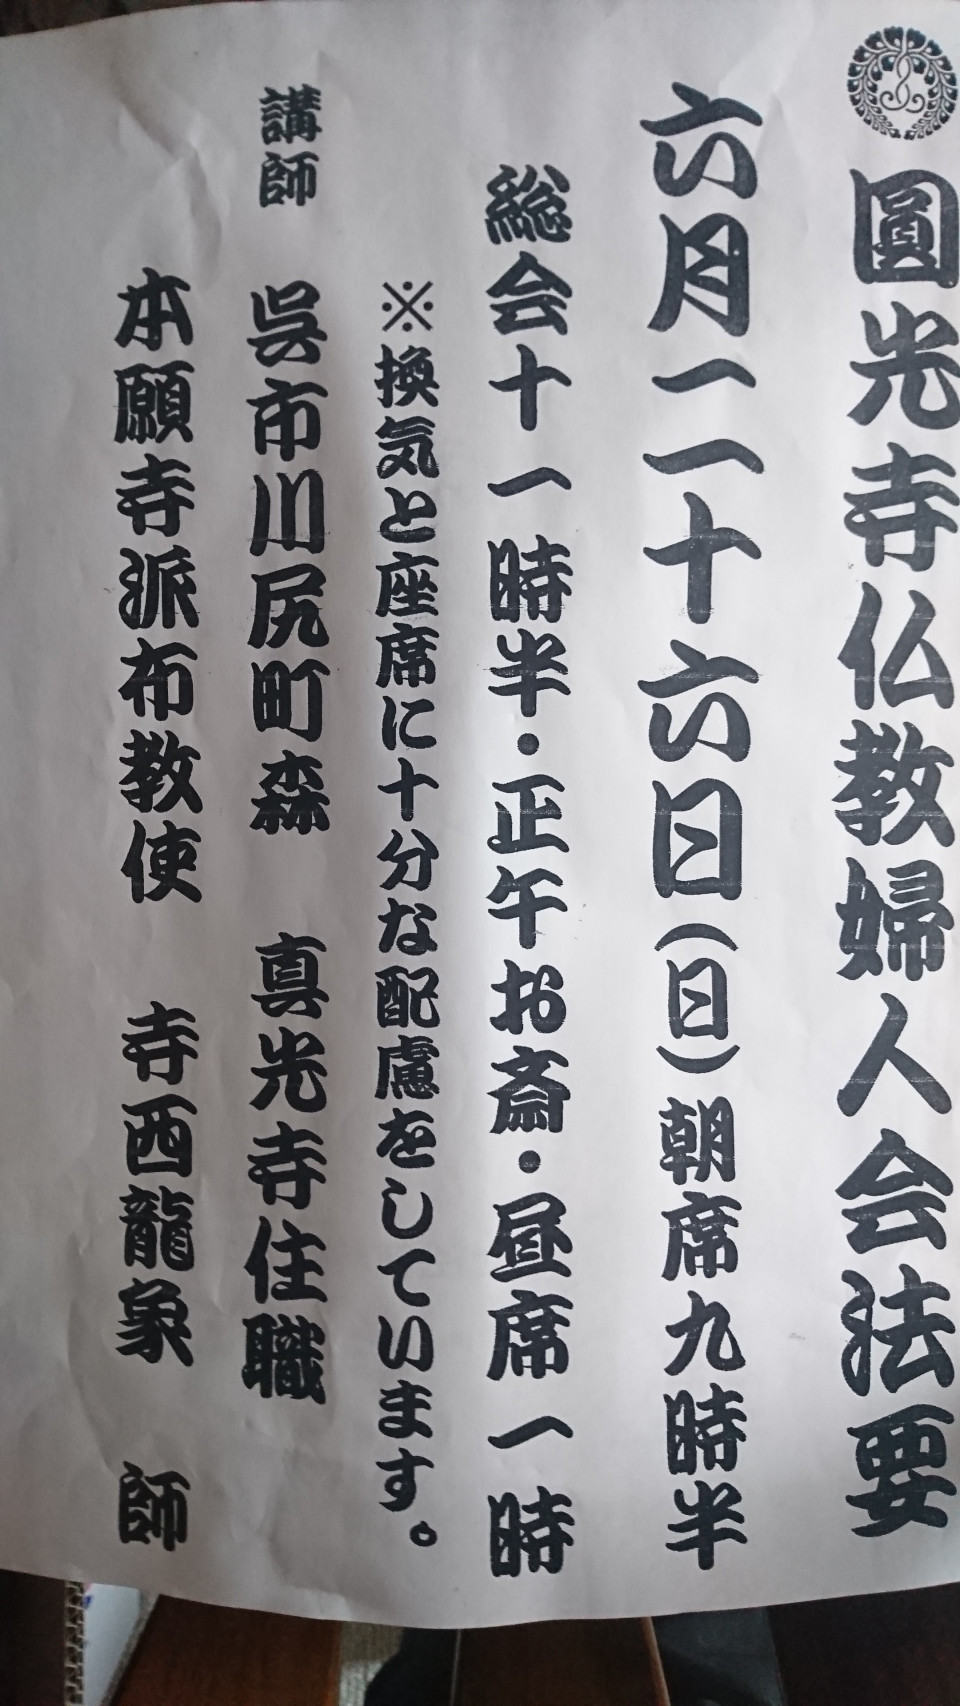 圓光寺仏教婦人会法要
六月二十六日(日)朝席九時半
総会十一時半・正午お斎・昼席一時
※換気と座席に十分な配慮をしています。
講師 呉市川尻町森 真光寺住職
本願寺派布教使 寺西龍象 師